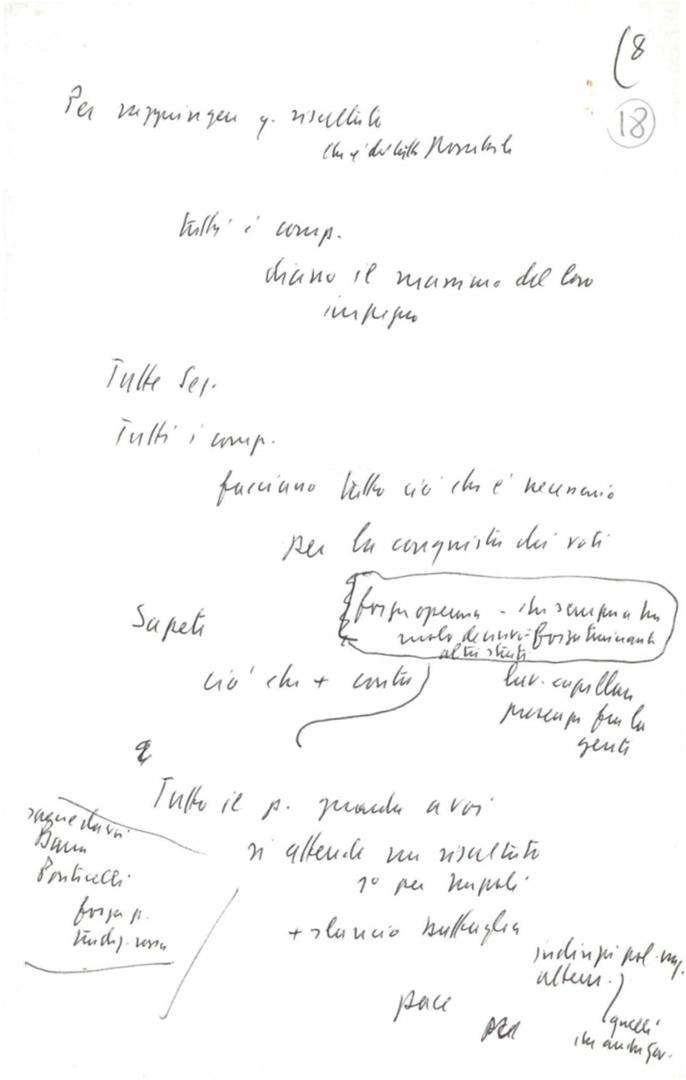 (8
18
Per raggiungere q. risultato
che è del tutto possibile
tutti i comp.
diano il massimo del loro
impegno
Tutte Sez.
Tutti i comp.
facciano tutto ciò che è necessario
per la conquista dei voti
forza operaia - che sempre ha
ruolo decisivo - forza trainante
altri strati
Sapete
ciò che + conta
lav. capillare
presenza fra la
gente
Tutto il p. guarda a voi
si attende un risultato
1° per Napoli
+ slancio battaglia
Barra
Ponticelli
forza p.
tradiz. rossa
indirizzi pol.
altern.
quelli
che anche gov.
pace